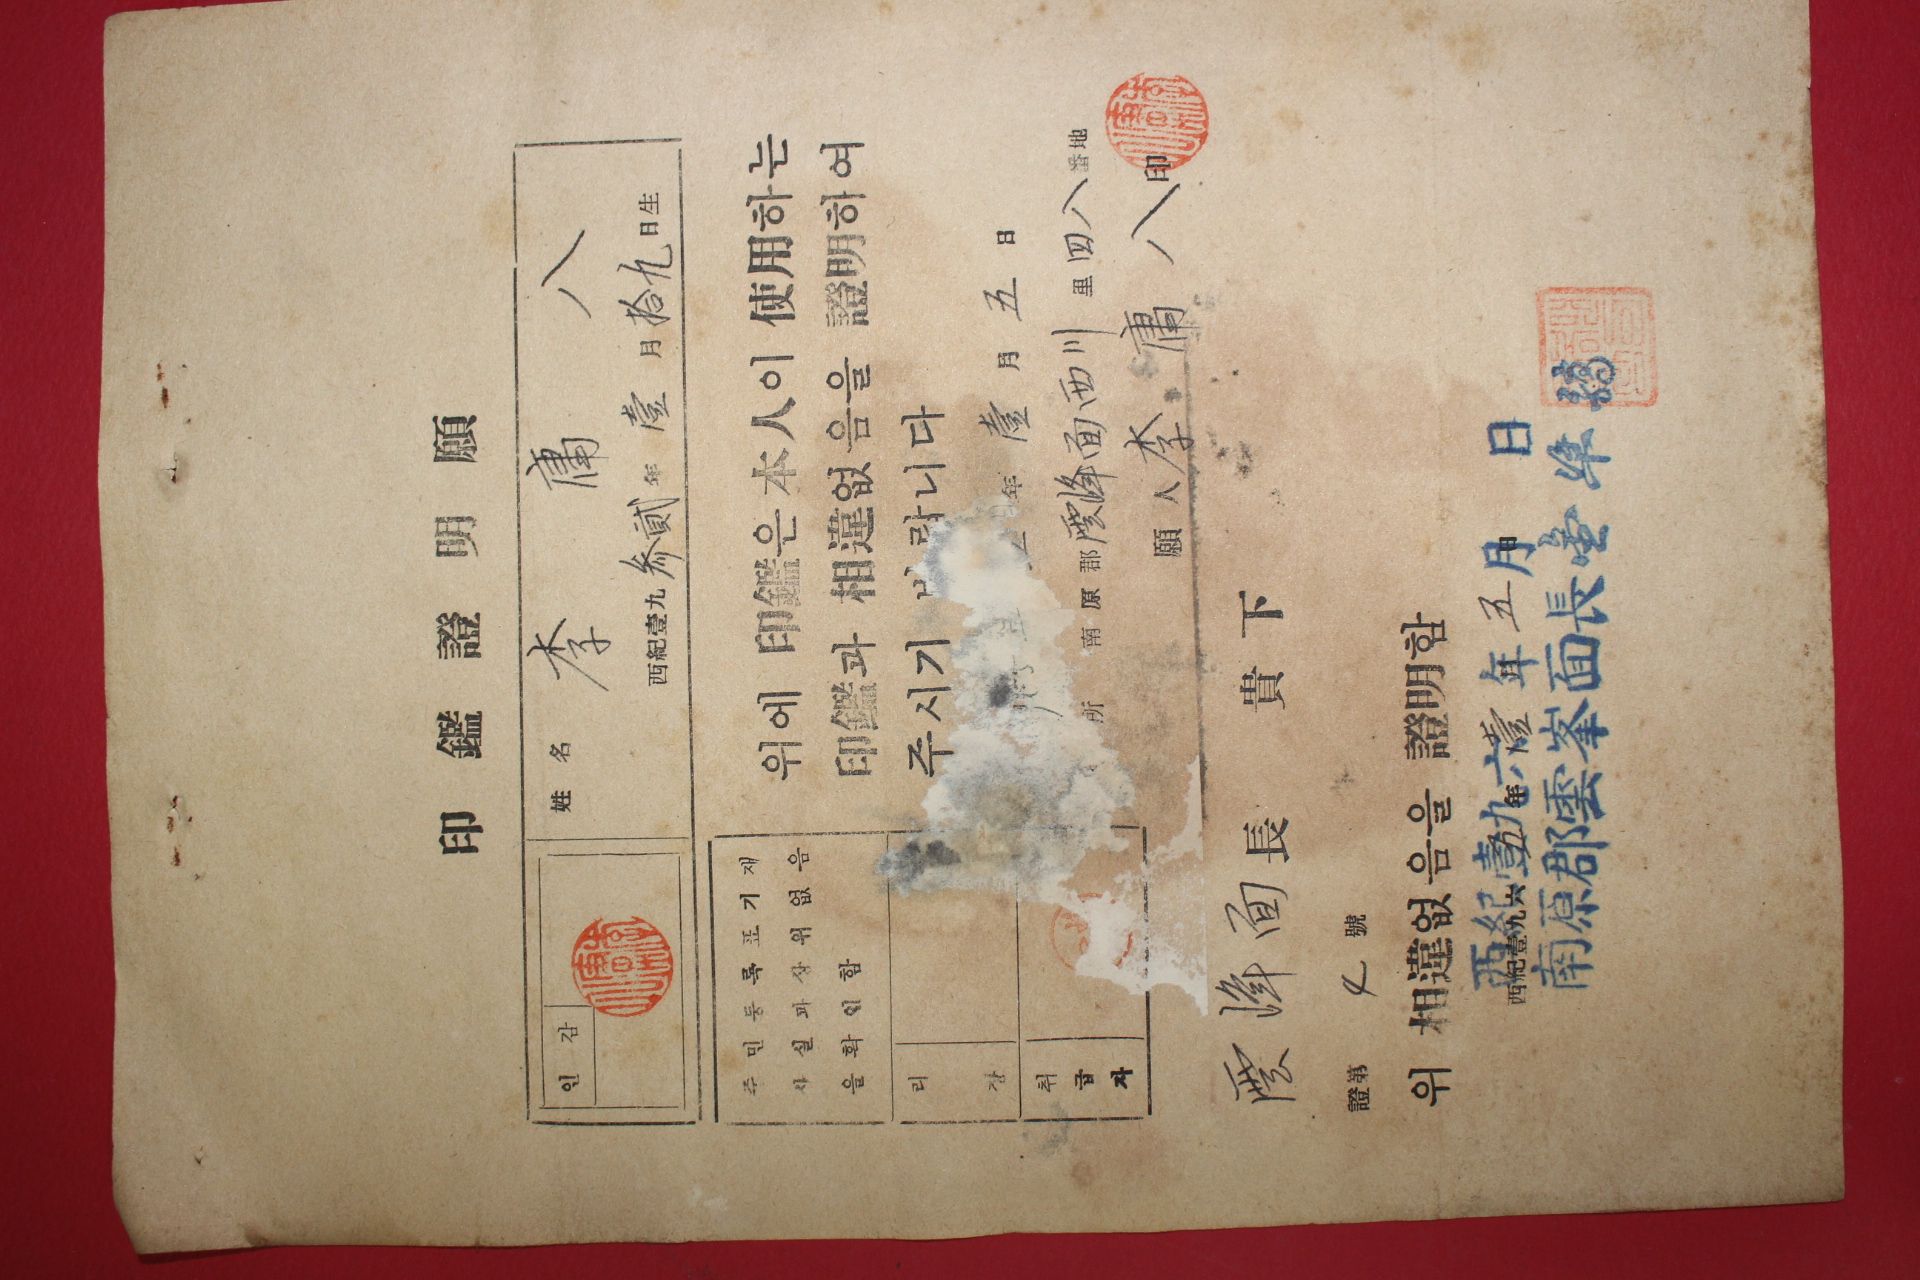 印鑑證明願
인감
姓名 李庸八
西紀壹九參貳年壹月拾九日生
위에 印鑑은 本人이 使用하는
印鑑과 相違없음을 證明하여
주시기 바랍니다
年壹月五日
所 南原郡雲峰面西川里四八番地
願人 李庸八 印
주민등록표기재
사실과상위없음
을확인함
리장
취급자
雲峰面長 貴下
證第 號
위 相違없음을 證明함
西紀壹九六壹年 月五日
西紀壹九六 年
南原郡雲峯面長